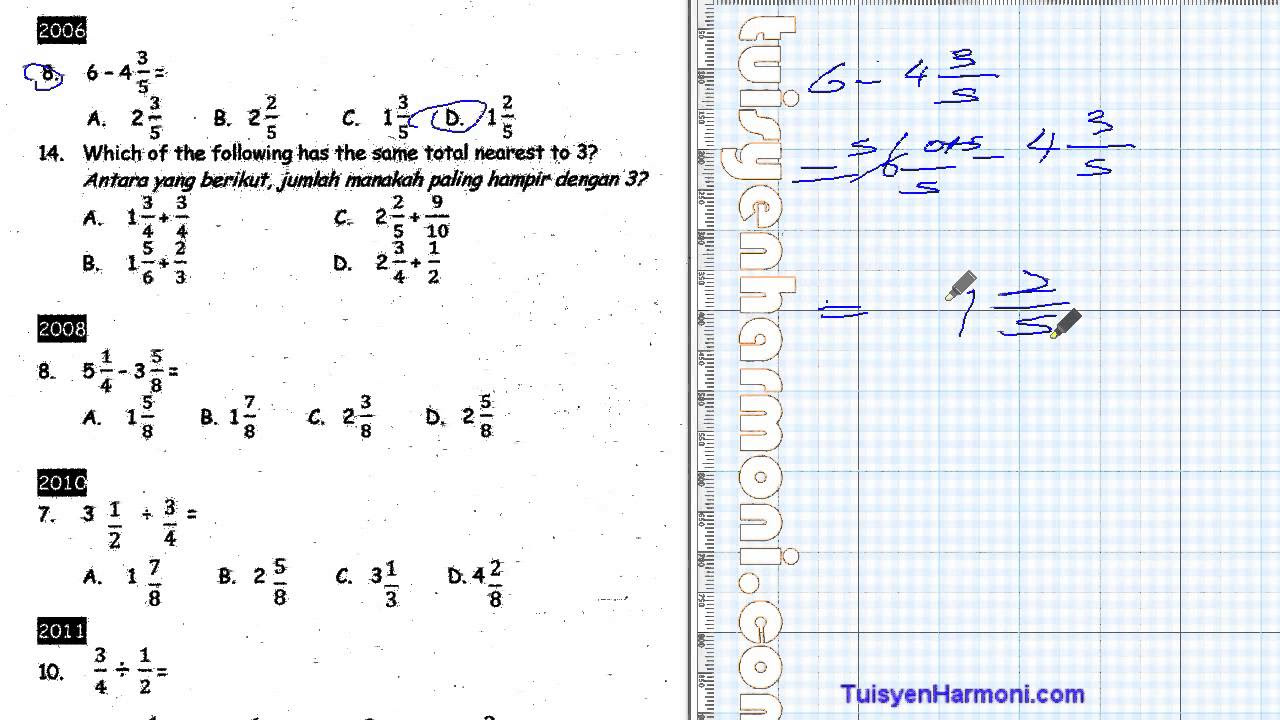 2006
8. 6 - 4 3/5 =
A. 2 3/5 B. 2 2/5 C. 1 3/5 D. 1 2/5
14. Which of the following has the same total nearest to 3?
Antara yang berikut, jumlah manakah paling hampir dengan 3?
A. 1 3/4 + 3/4 C. 2 2/5 + 9/10
B. 1 5/6 + 2/3 D. 2 3/4 + 1/2
2008
8. 5 1/4 - 3 5/8 =
A. 1 5/8 B. 1 7/8 C. 2 3/8 D. 2 5/8
2010
7. 3 1/2 ÷ 3/4 =
A. 1 7/8 B. 2 5/8 C. 3 1/3 D. 4 2/8
2011
10. 3/4 ÷ 1/2 =
6 - 4 3/5
= 5 6 0+5/5 - 4 3/5
= 1 2/5
tuisyenharmoni.con
TuisyenHarmoni.com